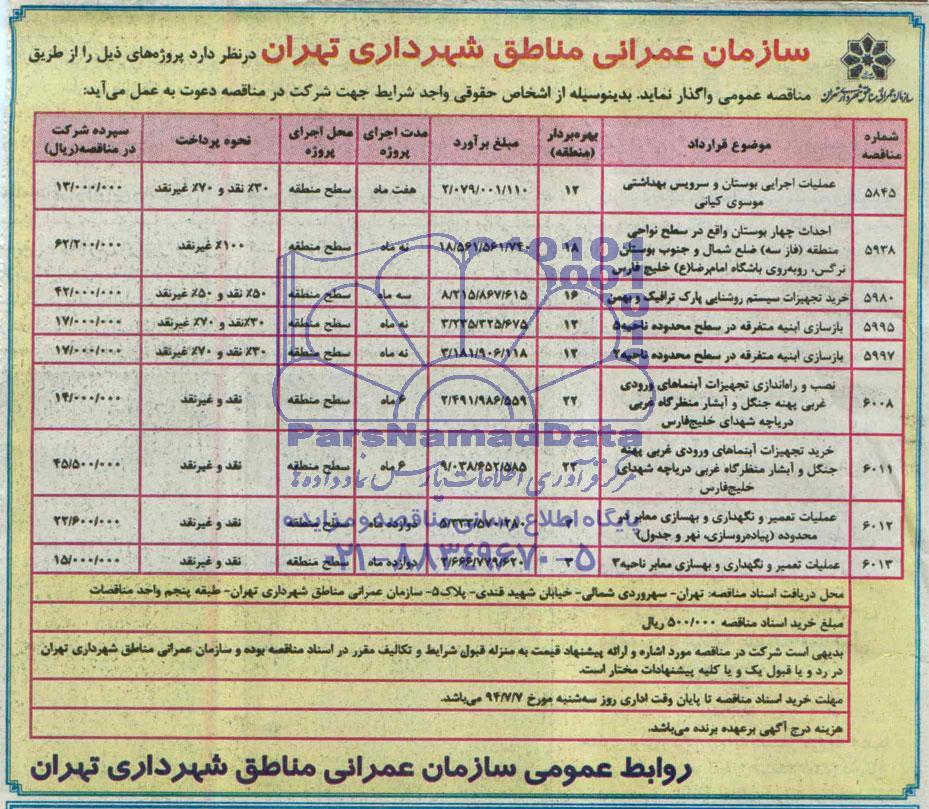 سازمان عمرانی مناطق شهرداری تهران درنظر دارد پروژه‌های ذیل را از طریق
مناقصه عمومی واگذار نماید. بدینوسیله از اشخاص حقوقی واجد شرایط جهت شرکت در مناقصه دعوت به عمل می‌آید:
سازمان عمرانی مناطق شهرداری تهران
شماره مناقصه موضوع قرارداد بهره‌بردار (منطقه) مبلغ برآورد مدت اجرای پروژه محل اجرای پروژه نحوه پرداخت سپرده شرکت در مناقصه(ریال)
۵۸۴۵ عملیات اجرایی بوستان و سرویس بهداشتی ۱۲ ۲/۰۷۹/۰۰۱/۱۱۰ هفت ماه سطح منطقه ۳۰٪ نقد و ۷۰٪ غیرنقد ۱۳/۰۰۰/۰۰۰
موسوی کیانی
احداث چهار بوستان واقع در سطح نواحی
۵۹۳۸ منطقه (فاز سه) ضلع شمال و جنوب بوستان ۱۸ ۱۸/۵۶۱/۵۶۱/۷۴۰ نه ماه سطح منطقه ۱۰۰٪ غیرنقد ۶۲/۲۰۰/۰۰۰
نرگس، روبه‌روی باشگاه امام‌رضا(ع) خلیج فارس
۵۹۸۰ خرید تجهیزات سیستم روشنایی پارک ترافیک و بهمن ۱۶ ۸/۲۱۵/۸۶۷/۶۱۵ سه ماه سطح منطقه ۵۰٪ نقد و ۵۰٪ غیرنقد ۴۲/۰۰۰/۰۰۰
۵۹۹۵ بازسازی ابنیه متفرقه در سطح محدوده ناحیه۵ ۱۲ ۳/۲۳۵/۳۲۵/۶۷۵ نه ماه سطح منطقه ۳۰٪نقد و ۷۰٪ غیرنقد ۱۷/۰۰۰/۰۰۰
۵۹۹۷ بازسازی ابنیه متفرقه در سطح محدوده ناحیه۲ ۱۲ ۳/۱۸۱/۹۰۶/۱۱۸ نه ماه سطح منطقه ۳۰٪ نقد و ۷۰٪ غیرنقد ۱۷/۰۰۰/۰۰۰
نصب و راه‌اندازی تجهیزات آبنماهای ورودی
۶۰۰۸ غربی پهنه جنگل و آبشار منظرگاه غربی ۲۲ ۲/۴۹۱/۹۸۶/۵۵۹ ۶ ماه سطح منطقه نقد و غیرنقد ۱۴/۰۰۰/۰۰۰
دریاچه شهدای خلیج‌فارس
خرید تجهیزات آبنماهای ورودی غربی پهنه
۶۰۱۱ جنگل و آبشار منظرگاه غربی دریاچه شهدای ۲۲ ۹/۰۳۸/۶۵۲/۵۸۵ ۶ ماه سطح منطقه نقد و غیرنقد ۴۵/۵۰۰/۰۰۰
خلیج‌فارس
۶۰۱۲ عملیات تعمیر و نگهداری و بهسازی معابر در دوازده ماه سطح منطقه نقد و غیرنقد ۲۲/۶۰۰/۰۰۰
محدوده (پیاده‌روسازی، نهر و جدول)
۶۰۱۳ عملیات تعمیر و نگهداری و بهسازی معابر ناحیه۳ ۳ ۲/۶۶۶/۷۷۹/۶۲۰ دوازده ماه سطح منطقه نقد و غیرنقد ۱۵/۰۰۰/۰۰۰
ParsNamadData
مرکز فرآوری اطلاعات پارس نماد داده‌ها
پایگاه اطلاع رسانی مناقصه و مزایده
۰۲۱-۸۸۳۴۹۶۷۰-۵
محل دریافت اسناد مناقصه: تهران- سهروردی شمالی- خیابان شهید قندی- پلاک۵- سازمان عمرانی مناطق شهرداری تهران- طبقه پنجم واحد مناقصات
مبلغ خرید اسناد مناقصه ۵۰۰/۰۰۰ ریال
بدیهی است شرکت در مناقصه مورد اشاره و ارائه پیشنهاد قیمت به منزله قبول شرایط و تکالیف مقرر در اسناد مناقصه بوده و سازمان عمرانی مناطق شهرداری تهران
در رد و یا قبول یک و یا کلیه پیشنهادات مختار است.
مهلت خرید اسناد مناقصه تا پایان وقت اداری روز سه‌شنبه مورخ ۹۴/۷/۷ می‌باشد.
هزینه درج آگهی برعهده برنده می‌باشد.
روابط عمومی سازمان عمرانی مناطق شهرداری تهران